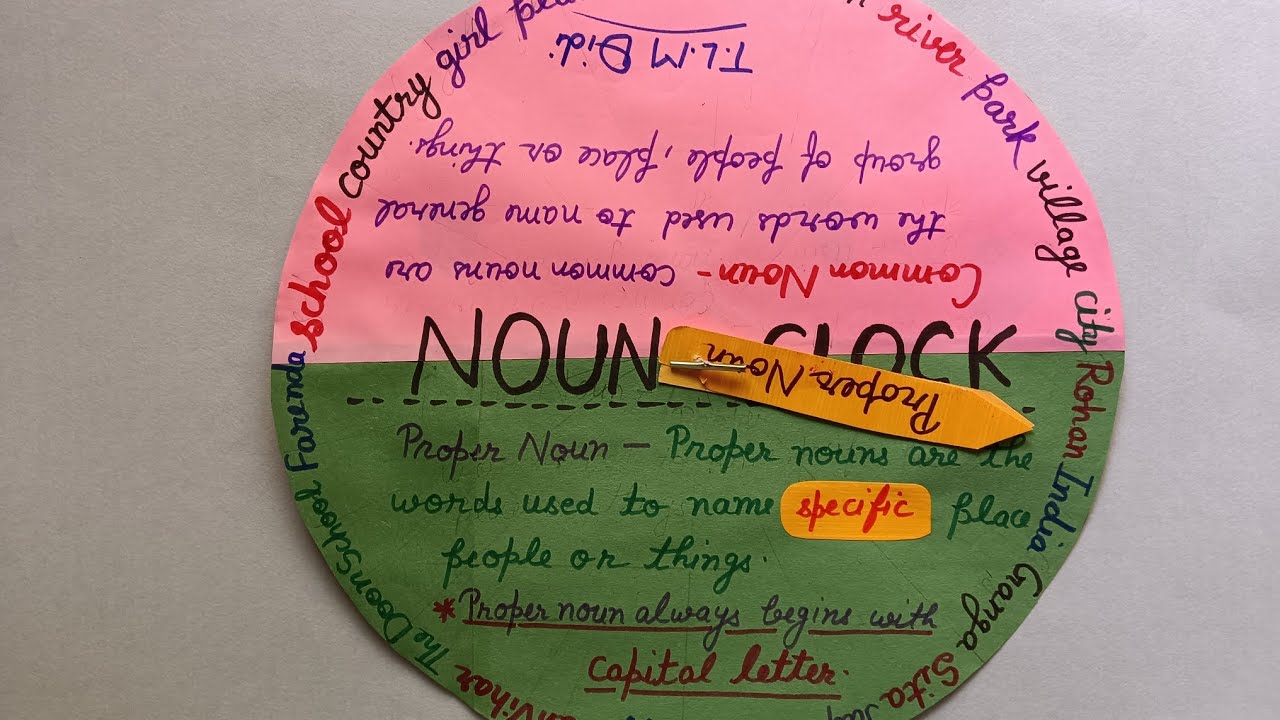 school country girl
river park village city
T.L.M Didi
Common Noun - Common nouns are
the words used to name general
group of people, place or things.
NOUN CLOCK
Proper Noun
Proper Noun - Proper nouns are the
words used to name specific place
people or things.
*Proper noun always begins with
capital letter.
Rohan India Ganga Sita
The Doon School Farenda